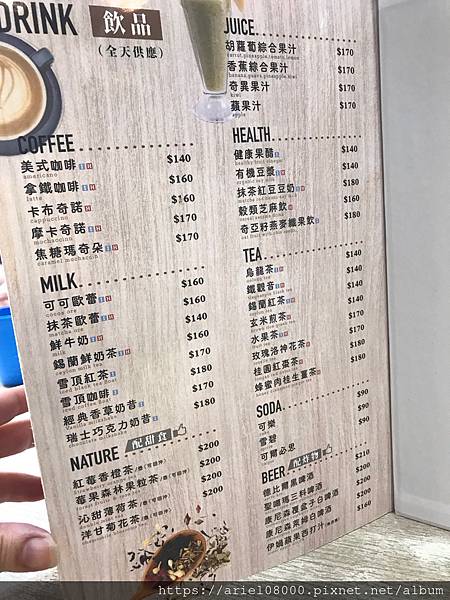 DRINK 飲品
(全天供應)
COFFEE
美式咖啡 $140
americano
拿鐵咖啡 $160
latte
卡布奇諾 $160
cappuccino
摩卡奇諾 $170
mochaccino
焦糖瑪奇朵 $170
caramel mochaccino
MILK
可可歐蕾 $160
cocoa ore
抹茶歐蕾 $140
matcha ore
鮮牛奶 $160
milk
錫蘭鮮奶茶 $170
ceylon milk tea
雪頂紅茶 $170
iced black tea float
雪頂咖啡 $180
iced coffee float
經典香草奶昔 $180
瑞士巧克力奶昔
NATURE 配甜食
紅莓香橙茶 $200
莓果森林果粒茶 $200
沁甜薄荷茶 $200
洋甘菊花茶 $200
JUICE
胡蘿蔔綜合果汁 $170
carrot,pineapple,tomato,lemon
香蕉綜合果汁 $170
banana,guava,pineapple,kiwi
奇異果汁 $170
kiwi
蘋果汁 $170
apple
HEALTH
健康果醋 $140
healthy fruit vinegar
有機豆漿 $140
organic soy milk
抹茶紅豆豆奶 $180
穀類芝麻飲 $160
奇亞籽燕麥纖果飲 $180
TEA
烏龍茶 $140
oolong tea
鐵觀音 $140
錫蘭紅茶 $140
ceylon tea
玄米煎茶 $140
水果茶 $170
fruit tea
玫瑰洛神花茶 $170
桂圓紅棗茶 $180
蜂蜜肉桂生薑茶 $180
SODA
可樂 $90
雪碧 $90
可爾必思 $90
BEER 配炸物
德比爾鳳啤酒 $210
聖噶瑪三料啤酒 $200
康尼森覆盆子白啤酒 $200
康尼森萊姆白啤酒 $200
伊嫡蘋果西打汁 $160
https://ariel08000.pixnet.net/album